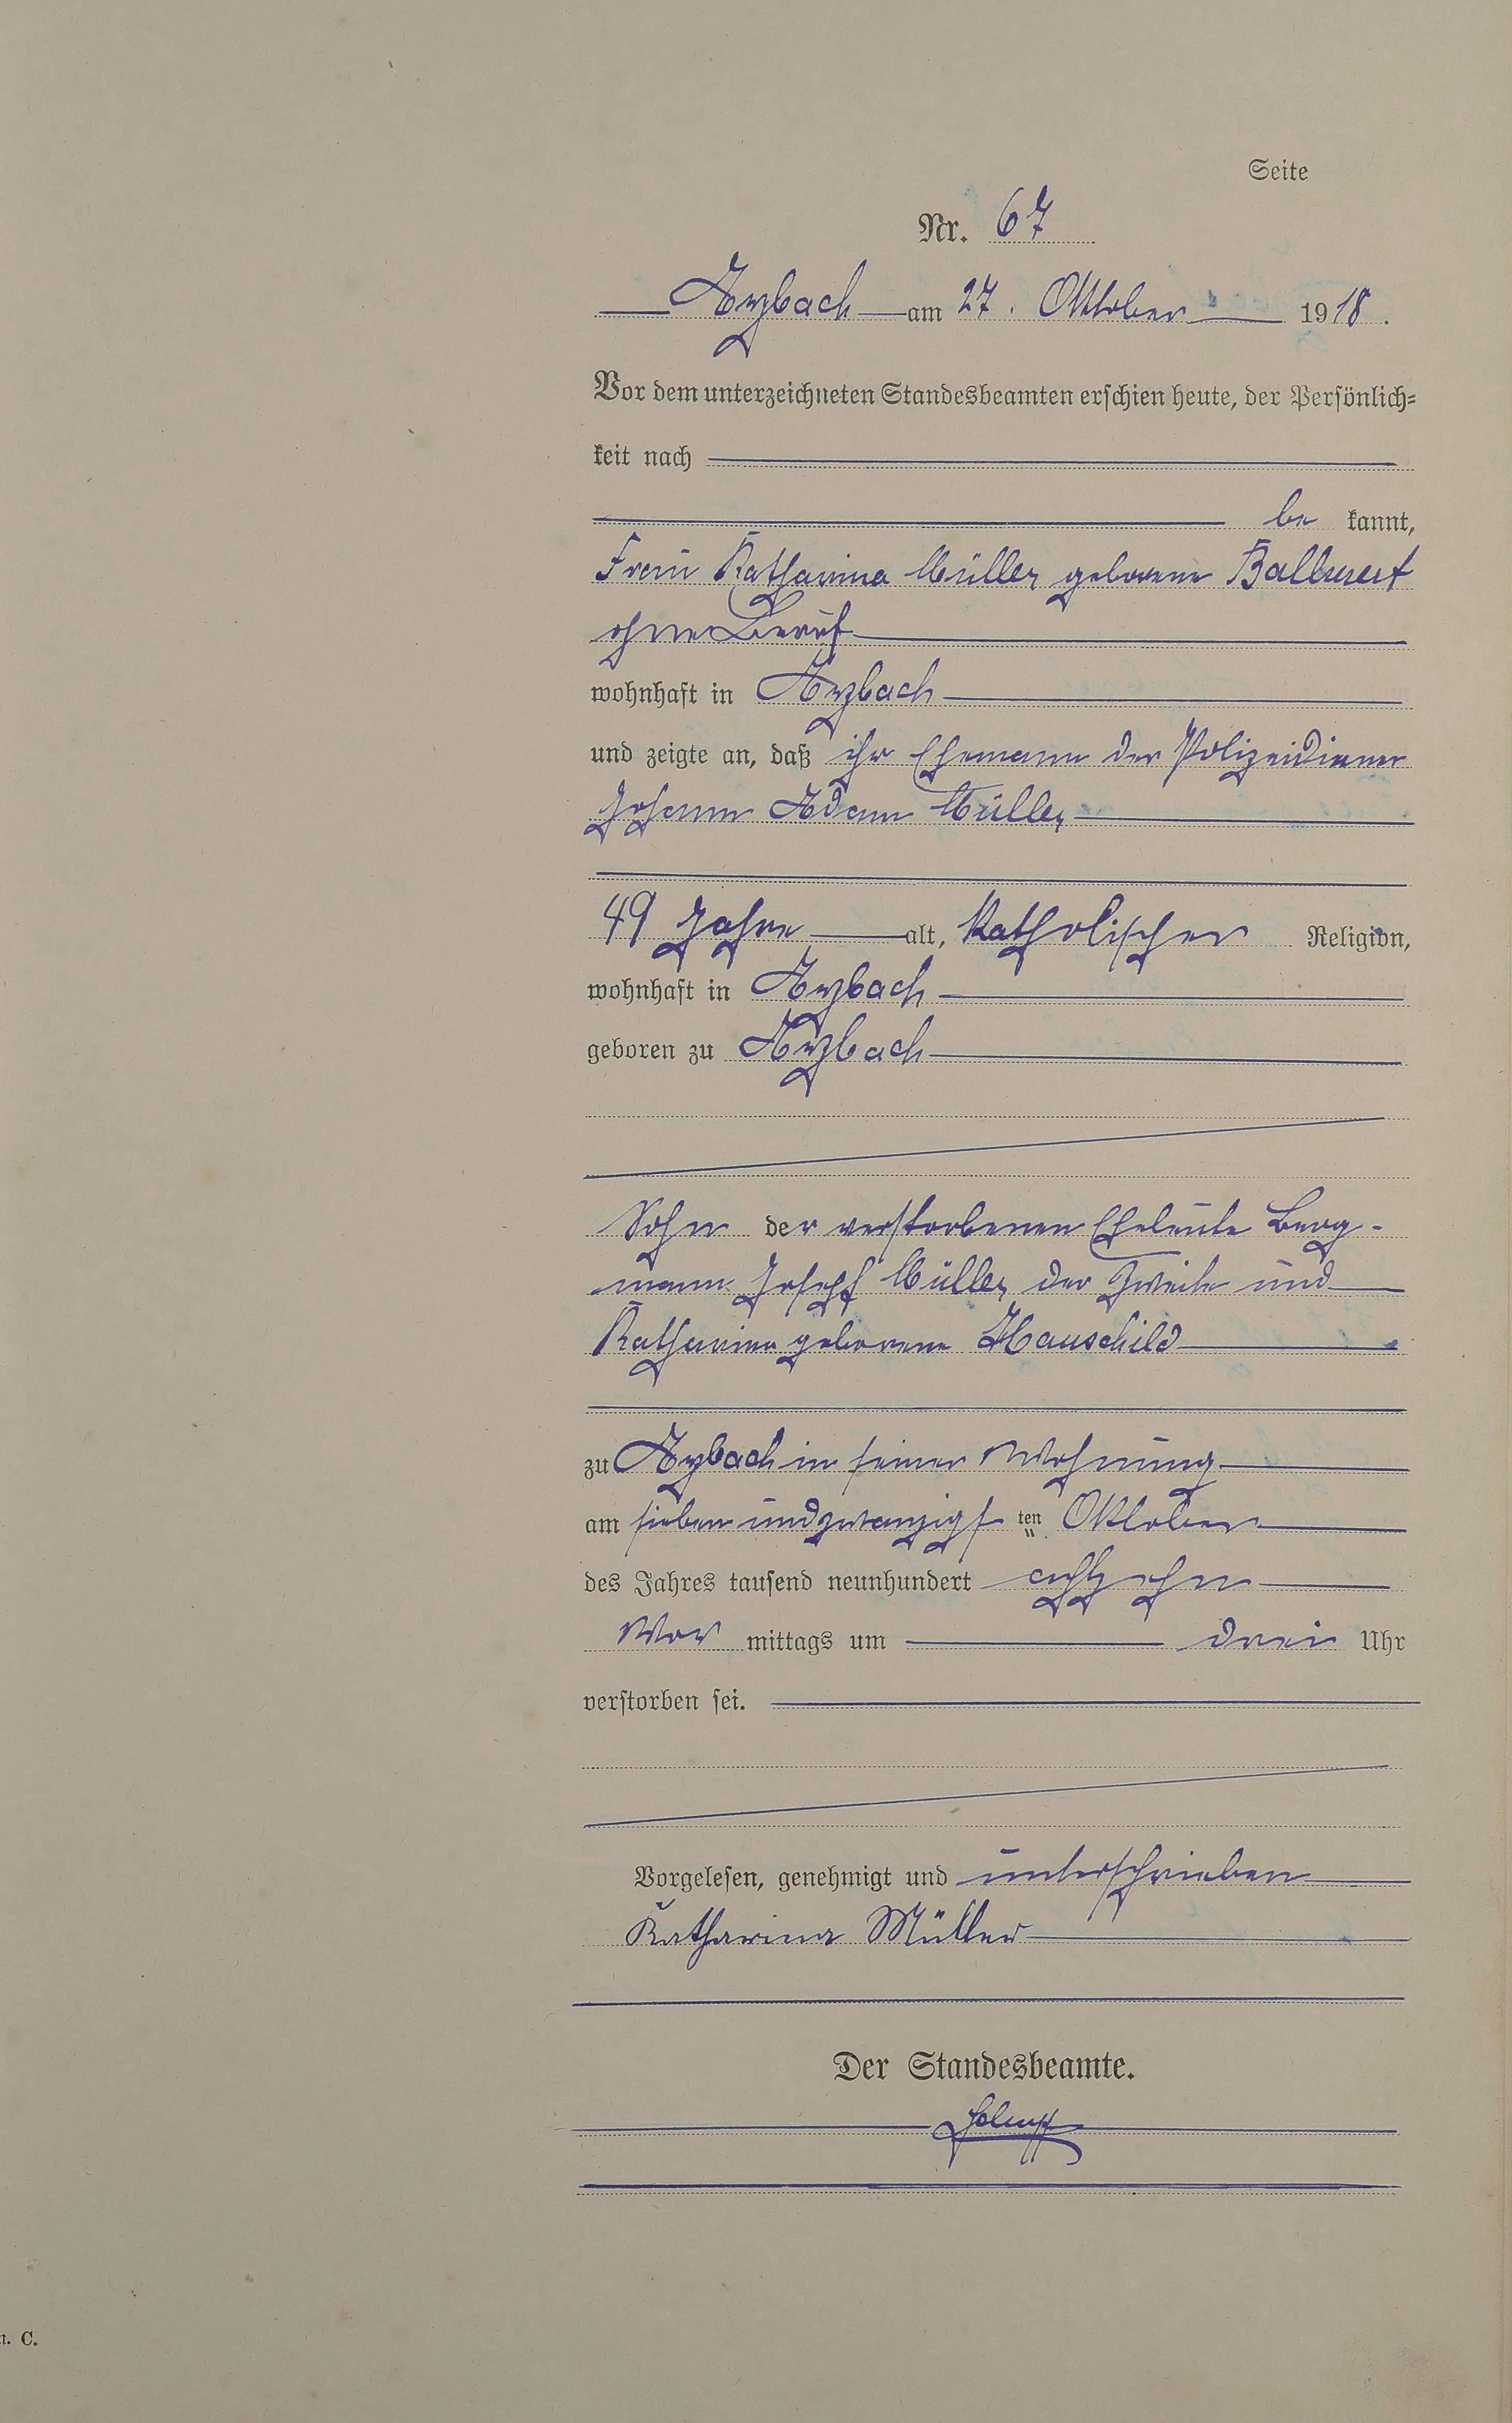 Seite
Nr. 67
Arzbach am 27. Oktober 1918.
Vor dem unterzeichneten Standesbeamten erschien heute, der Persönlich-
keit nach
be kannt,
Frau Katharina Müller geborene
ohne Beruf
wohnhaft in Arzbach
und zeigte an, daß ihr Ehemann der Polizeidiener
Johann Adam Müller
49 Jahre alt, katholischer Religion,
wohnhaft in Arzbach
geboren zu Arzbach
Sohn der verstorbenen Eheleute Berg-
mann Joseph Müller der Zweite und
Katharina geborene Hauschild
zu Arzbach in seiner Wohnung
am siebenundzwanzigsten Oktober
des Jahres tausend neunhundert achtzehn
Vor mittags um drei Uhr
verstorben sei.
Vorgelesen, genehmigt und unterschrieben
Katharina Müller
Der Standesbeamte.
n. C.